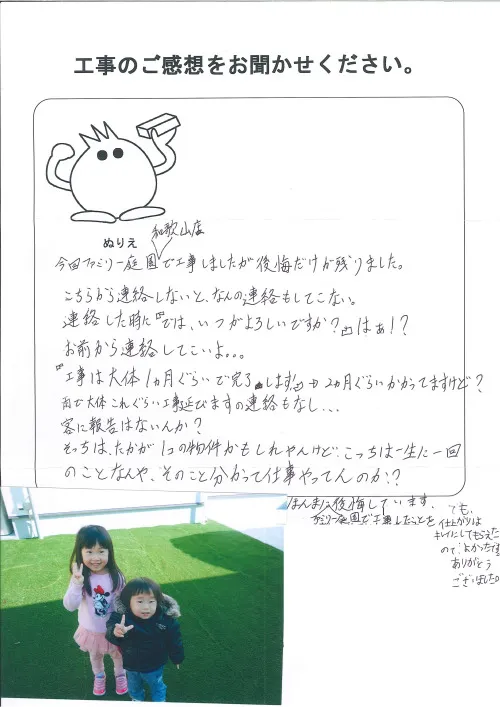 工事のご感想をお聞かせください。
ぬりえ
和歌山店
今回ファミリー庭園で工事しましたが後悔だけが残りました。
こちらから連絡しないと、なんの連絡もしてこない。
連絡した時に『では、いつがよろしいですか?』はぁ!?
お前から連絡してこいよ。。。
『工事は大体1ヵ月ぐらいで完了します!』→2ヵ月ぐらいかかってますけど?
雨で大体これぐらい工事延びますの連絡もなし...
客に報告はないんか?
そっちは、たかが1つの物件かもしれやんけど、こっちは一生に一回
のことなんや、そのこと分かって仕事やってんのか!?
ほんまに後悔しています。
ファミリー庭園で工事したことを
でも、
仕上がりは
キレイにしてもらえた
ので、よかったです
ありがとう
ございました。